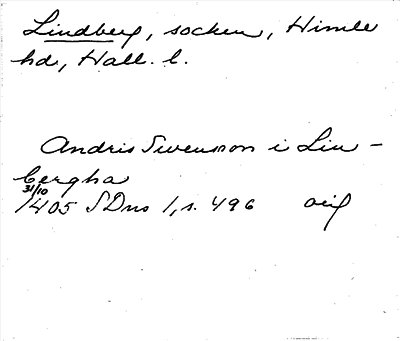 Lindberg, socken, Himle
hd, Hall. l.
Andris Swensson i Lin-
bergha
31/10
1405 SDns 1, s. 496 orig